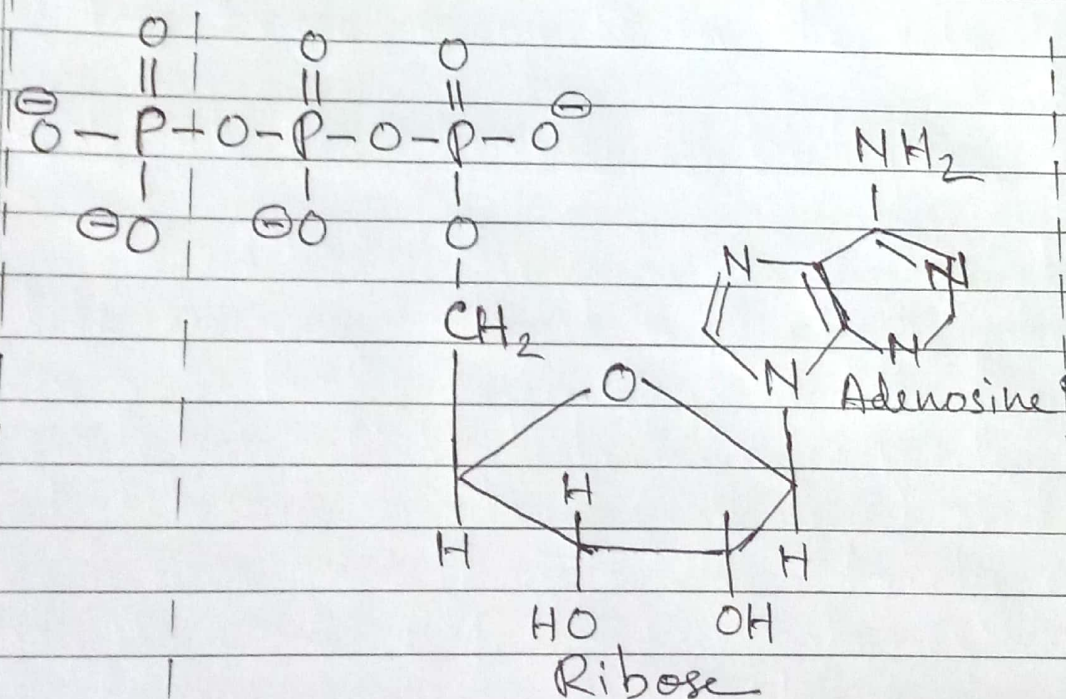 O O O
⊖O-P-O-P-O-P-O⊖
NH₂
⊖O ⊖O O
N N
CH₂
N
O N Adenosine
H
H H
HO OH
Ribose